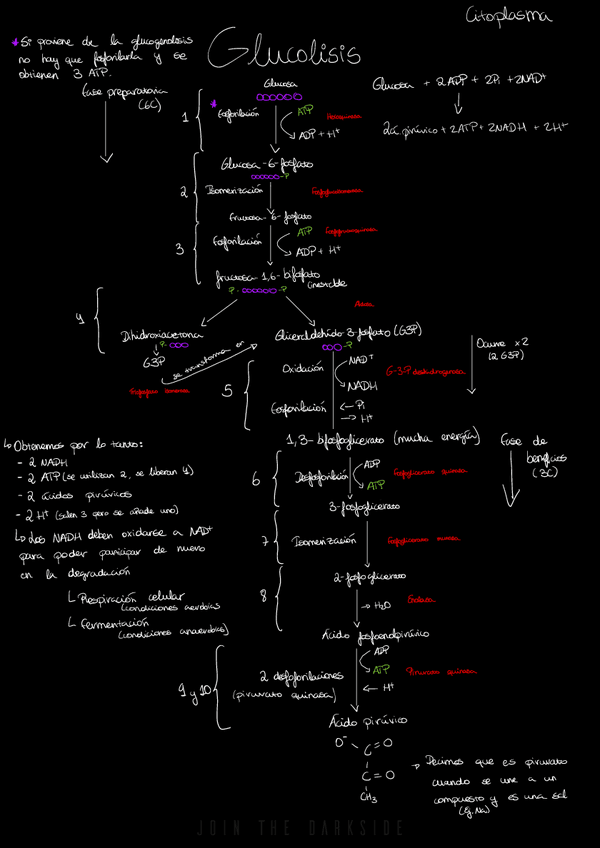 Citoplasma
* Si proviene de la glucogenolisis
no hay que fosforilarla y se
obtienen 3 ATP.
Glucolisis
Fase preparatoria
(6C)
Glucosa
Glucosa + 2ADP + 2Pi + 2NAD+
2á. pirúvico + 2ATP + 2NADH + 2H+
1
*
Fosforilación
ATP
ADP + H+
Hexoquinasa
Glucosa-6-fosfato
-P
2
Isomerización
Fructosa-6-fosfato
3
Fosforilación
ATP
ADP + H+
fructosa-1,6-bifosfato
inestable
P- -P
4
Dihidroxiacetona
P-
G3P
se transforma en
Gliceraldehído-3-fosfato (G3P)
-P
Ocurre x2
(2 G3P)
5
Oxidación
NAD+
NADH
G-3-P deshidrogenasa
Fosforilación
Pi
H+
1,3-bifosfoglicerato (mucha energía)
Fase de
beneficios
(3C)
Obtenemos por lo tanto:
- 2 NADH
- 2 ATP (se utilizan 2, se liberan 4)
- 2 ácidos pirúvicos
- 2 H+ (salen 3 pero se añade uno)
Los NADH deben oxidarse a NAD+
para poder participar de nuevo
en la degradación
Respiración celular
(condiciones aerobias
Fermentación
(condiciones anaerobias)
6
Desfosforilación
ADP
ATP
Fosfoglicerato quinasa
3-fosfoglicerato
7
Isomerización
Fosfoglicerato mutasa
2-fosfoglicerato
8
H2O
Enolasa
Ácido fosfoenolpirúvico
9 y 10
2 desfosforilaciones
(piruvato quinasa)
ADP
ATP
H+
Piruvato quinasa
Ácido pirúvico
O- C = O
C = O
CH3
Decimos que es piruvato
cuando se une a un
compuesto y es una sal
(Ej. Na)
JOIN THE DARKSIDE